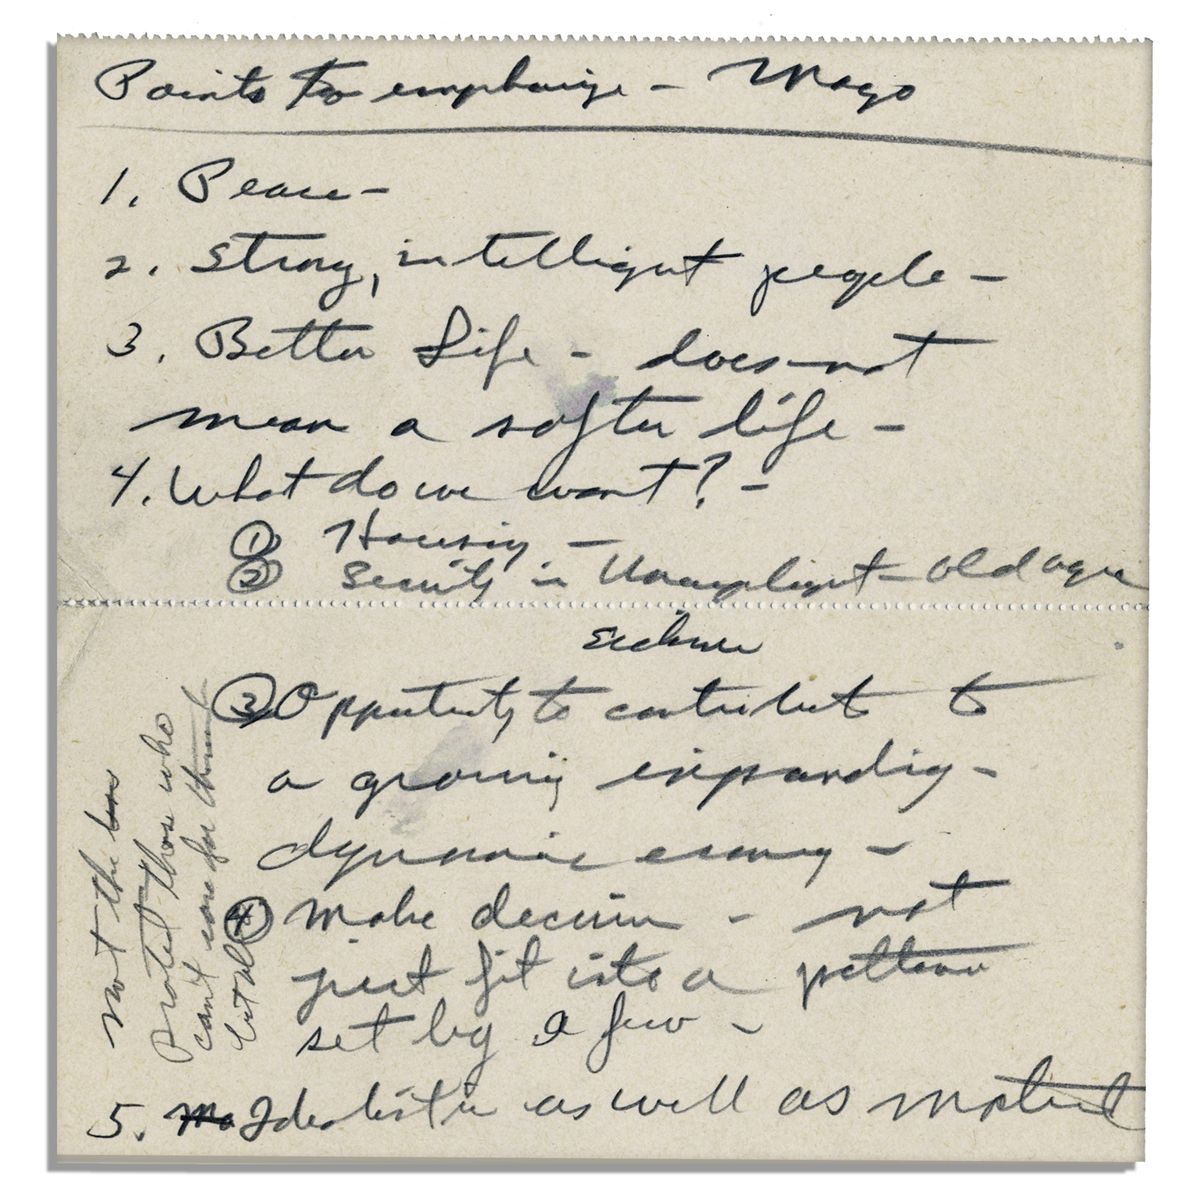 Points to emphasize - Mayo
1. Peace -
2. Strong, intelligent people -
3. Better Life - does not
mean a softer life -
4. What do we want? -
① Housing -
② Security in Unemployment - Old age
③ Opportunity to contribute to
a growing expanding -
dynamic economy -
④ Make decisions - not
just fit into a pattern
set by a few -
Not the
Protect those who
can't care for
but
5. Idealistic as well as material